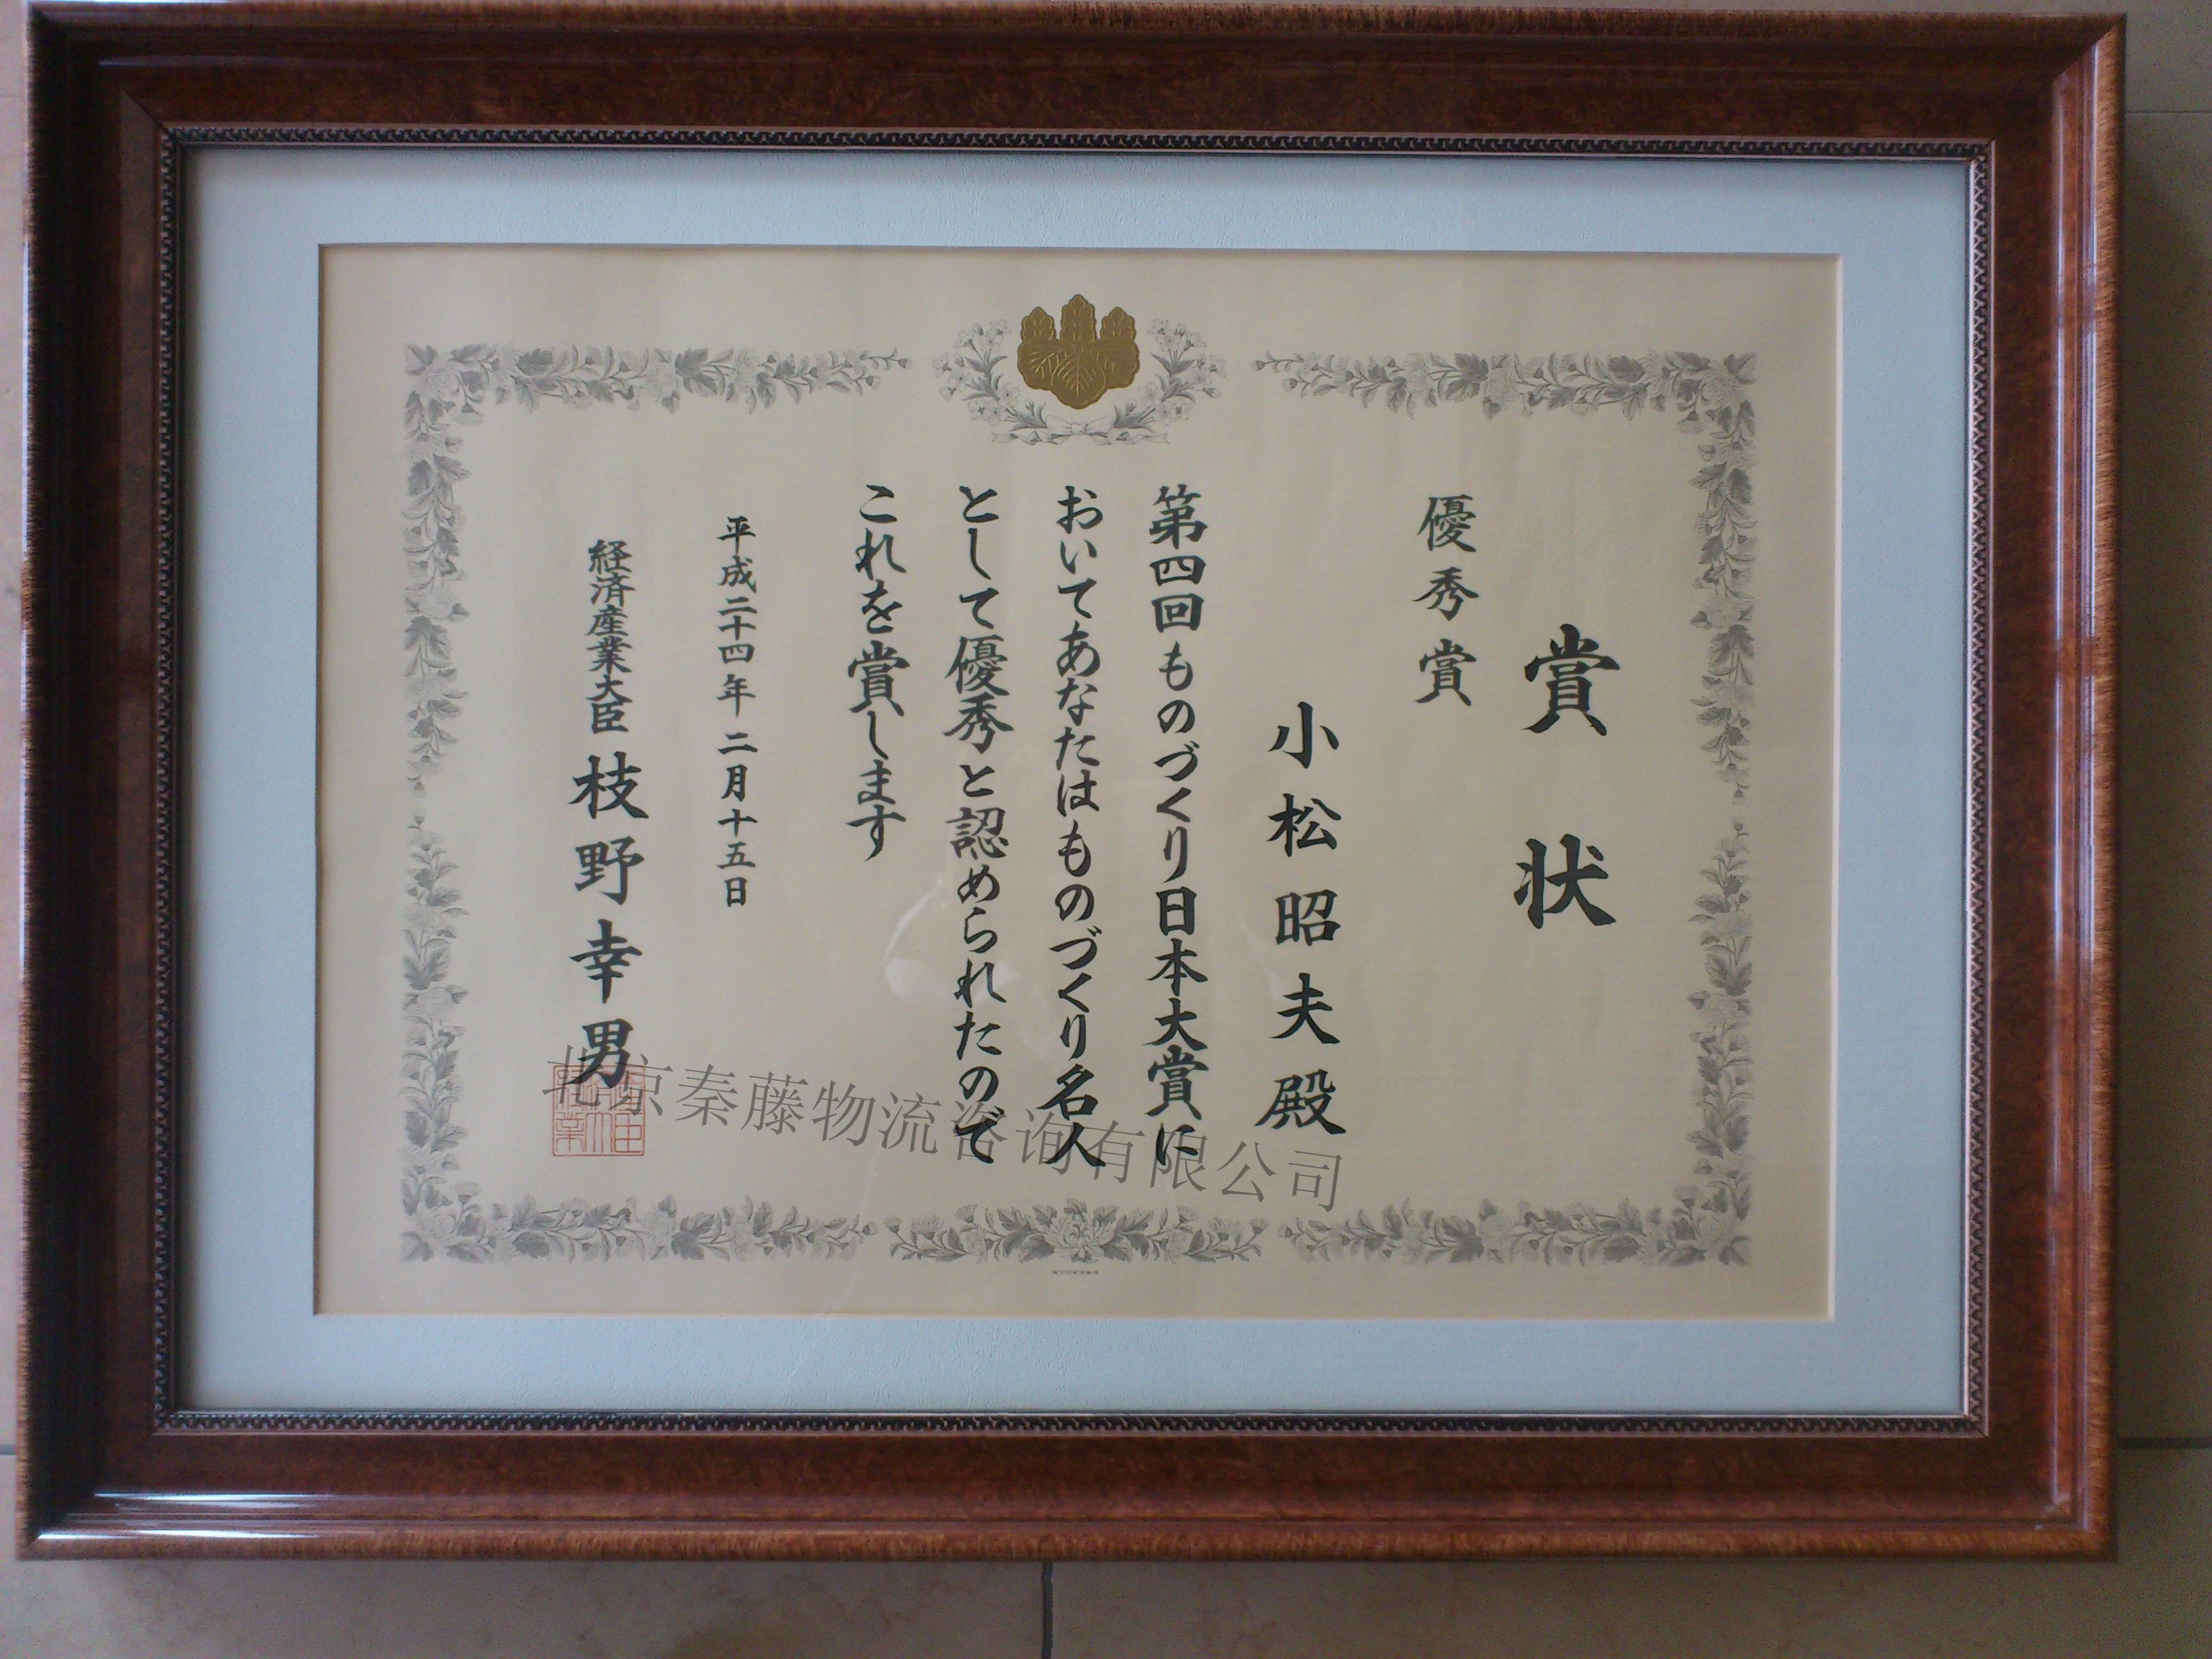 賞状
優秀賞
小松昭夫殿
第四回ものづくり日本大賞に
おいてあなたはものづくり名人
として優秀と認められたので
これを賞します
平成二十四年二月十五日
経済産業大臣 枝野幸男
北京秦藤物流咨询有限公司